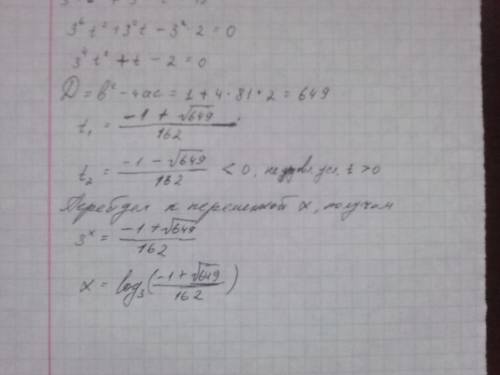 3⁶t² + 3²t − 3²·2 = 0
3⁴t² + t − 2 = 0
D = b² − 4ac = 1 + 4·81·2 = 649
t₁ = (−1 + √649)/162
t₂ = (−1 − √649)/162 < 0, не удовл. усл. t > 0
Перейдем к переменной x, получим
3ˣ = (−1 + √649)/162
x = log₃((−1 + √649)/162)